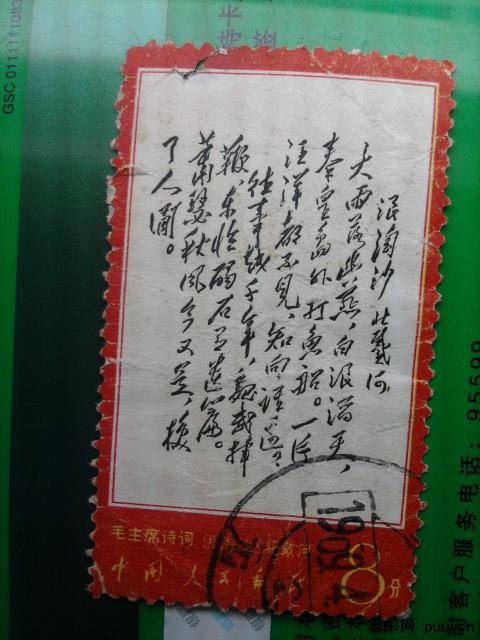 浪淘沙 北戴河
大雨落幽燕，白浪滔天，
秦皇岛外打鱼船。一片
汪洋都不见，知向谁边？
往事越千年，魏武挥
鞭，东临碣石有遗篇。
萧瑟秋风今又是，换
了人间。
毛主席诗词 浪 北戴河
中国人民邮
8分
GSC 0111111083
客户服务电话：95599